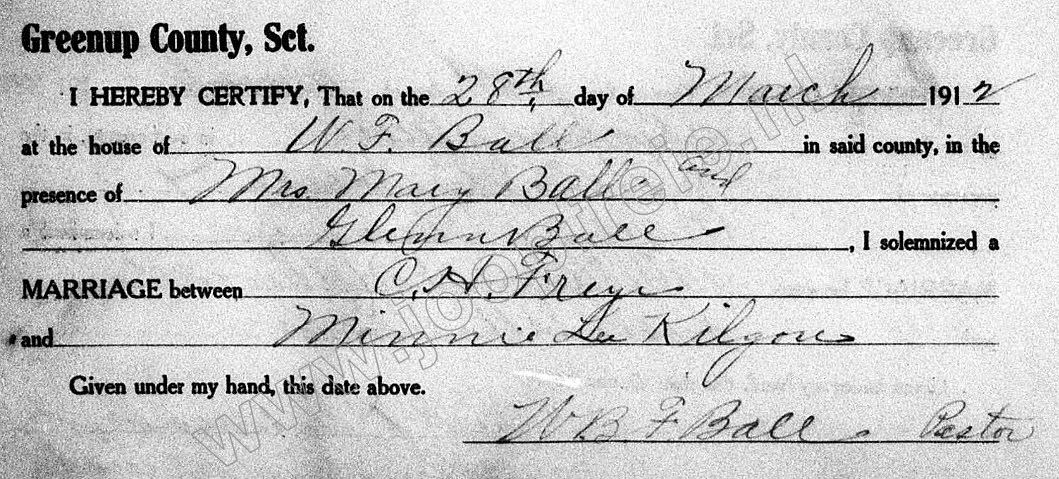 Greenup County, Sct.
I HEREBY CERTIFY, That on the 28th day of March 1912
at the house of W. F. Ball in said county, in the
presence of Mrs. Mary Ball and
Glenn Ball, I solemnized a
MARRIAGE between C. H. Frey
and Minnie Lee Kilgour
Given under my hand, this date above.
W. B. F. Ball Pastor